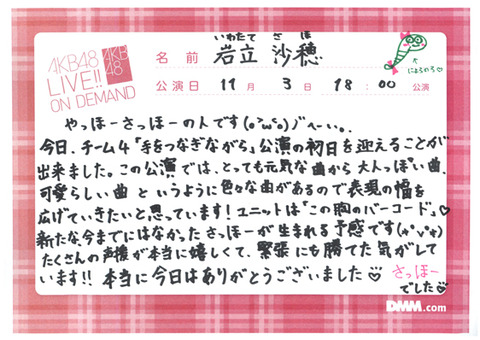 AKB48
LIVE!!
ON DEMAND
AKB
48
いわたて さほ
名前 岩立 沙穂
公演日 11月 3日 18:00 公演
にょろのろ♡
やっほーさっほーの人です(o'ω'o)ノへーい。
今日、チーム4「手をつなぎながら」公演の初日を迎えることが
出来ました。この公演では、とっても元気な曲から大人っぽい曲、
可愛らしい曲 というように色々な曲があるので表現の幅を
広げていきたいと思っています!ユニットは「この胸のバーコード」♡
新たな、今までにはなかったさっほーが生まれる予感です(o'∀'o)
たくさんの声援が本当に嬉しくて、緊張にも勝てた気がして
います!!本当に今日はありがとうございました♡ さっほー
でした♡
DMM.com